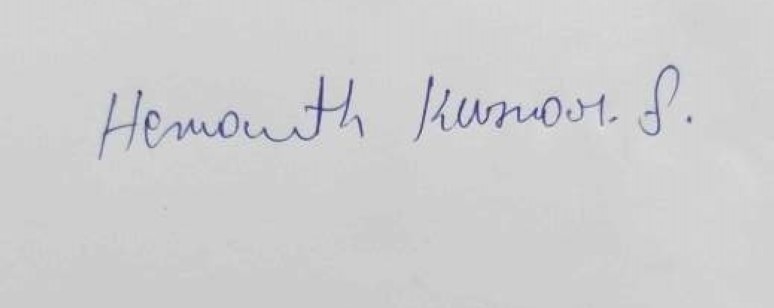 Hemanth Kumar. S.